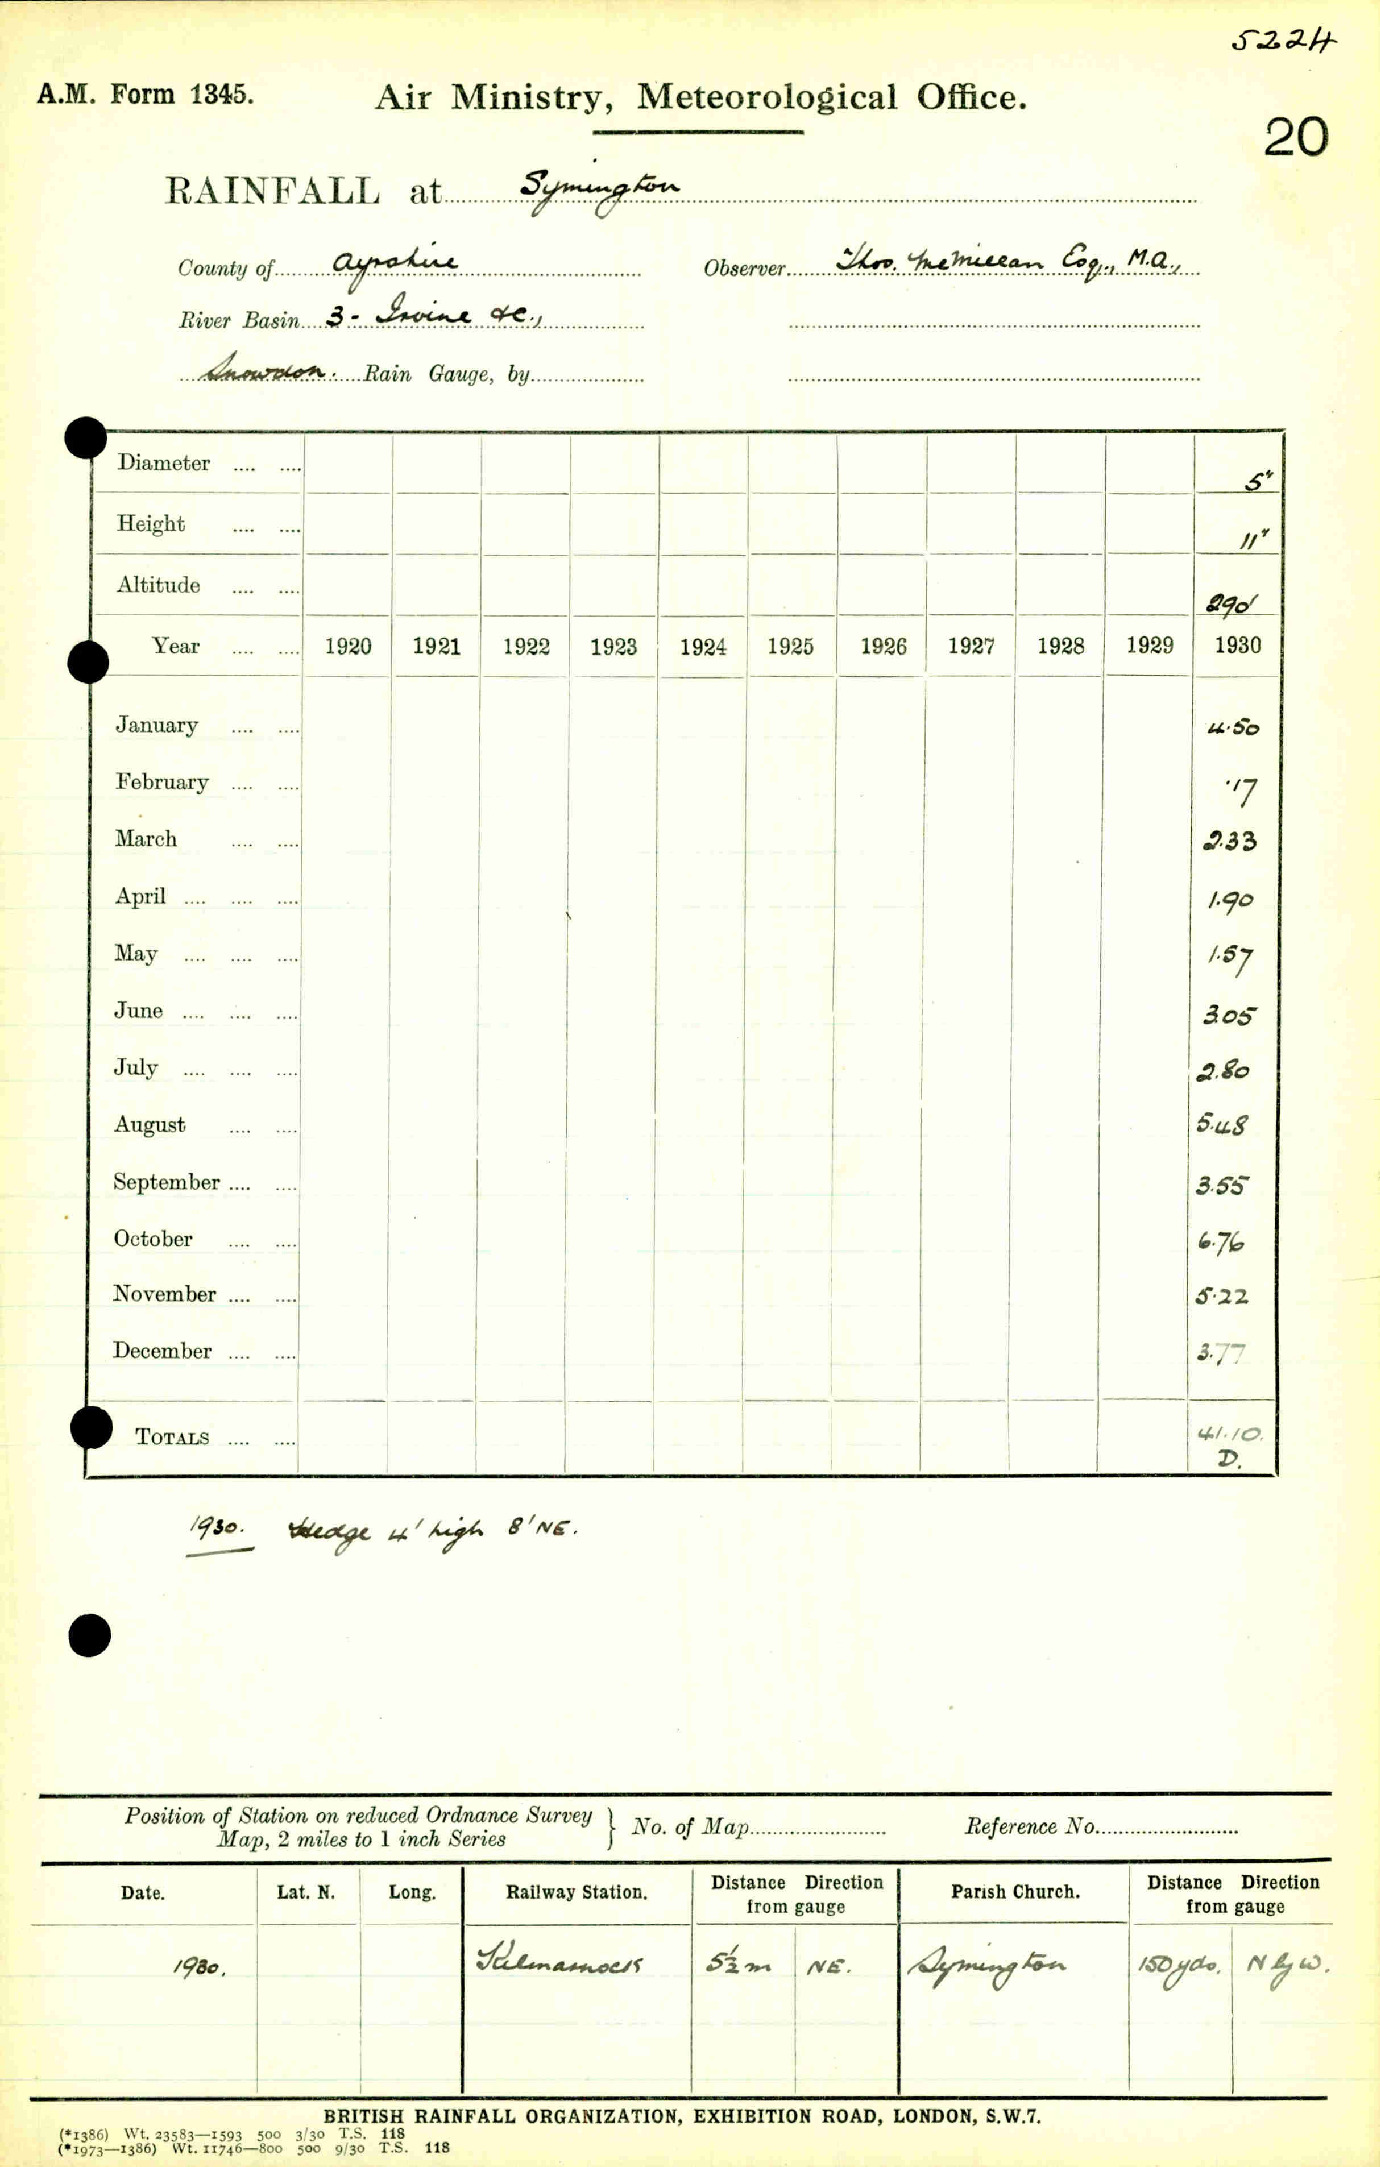 5224
A.M. Form 1345. Air Ministry, Meteorological Office.
20
RAINFALL at Symington
County of Ayrshire Observer Thos. McMillan Esq., M.A.,
River Basin 3 - Irvine &c.,
Snowdon. Rain Gauge, by
Diameter .... .... 5"
Height .... .... 11"
Altitude .... .... 290'
Year .... .... 1920 1921 1922 1923 1924 1925 1926 1927 1928 1929 1930
January .... .... 4.50
February .... .... .17
March .... .... 2.33
April .... .... .... 1.90
May .... .... .... 1.57
June .... .... .... 3.05
July .... .... .... 2.80
August .... .... 5.48
September .... .... 3.55
October .... .... 6.76
November .... .... 5.22
December .... .... 3.77
TOTALS .... .... 41.10.
D.
1930. Hedge 4' high 8' NE.
Position of Station on reduced Ordnance Survey
Map, 2 miles to 1 inch Series } No. of Map Reference No.
Date. Lat. N. Long. Railway Station. Distance Direction from gauge Parish Church. Distance Direction from gauge
1930. Kilmarnock 5½ m NE. Symington 150 yds. N by W.
BRITISH RAINFALL ORGANIZATION, EXHIBITION ROAD, LONDON, S.W.7.
(*1386) Wt. 23583—1593 500 3/30 T.S. 118
(*1973—1386) Wt. 11746—800 500 9/30 T.S. 118